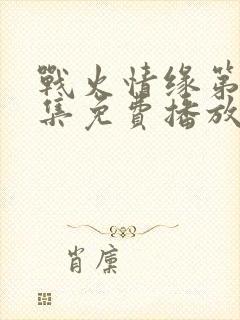 戰火情缘第
集免費播放
肖廩